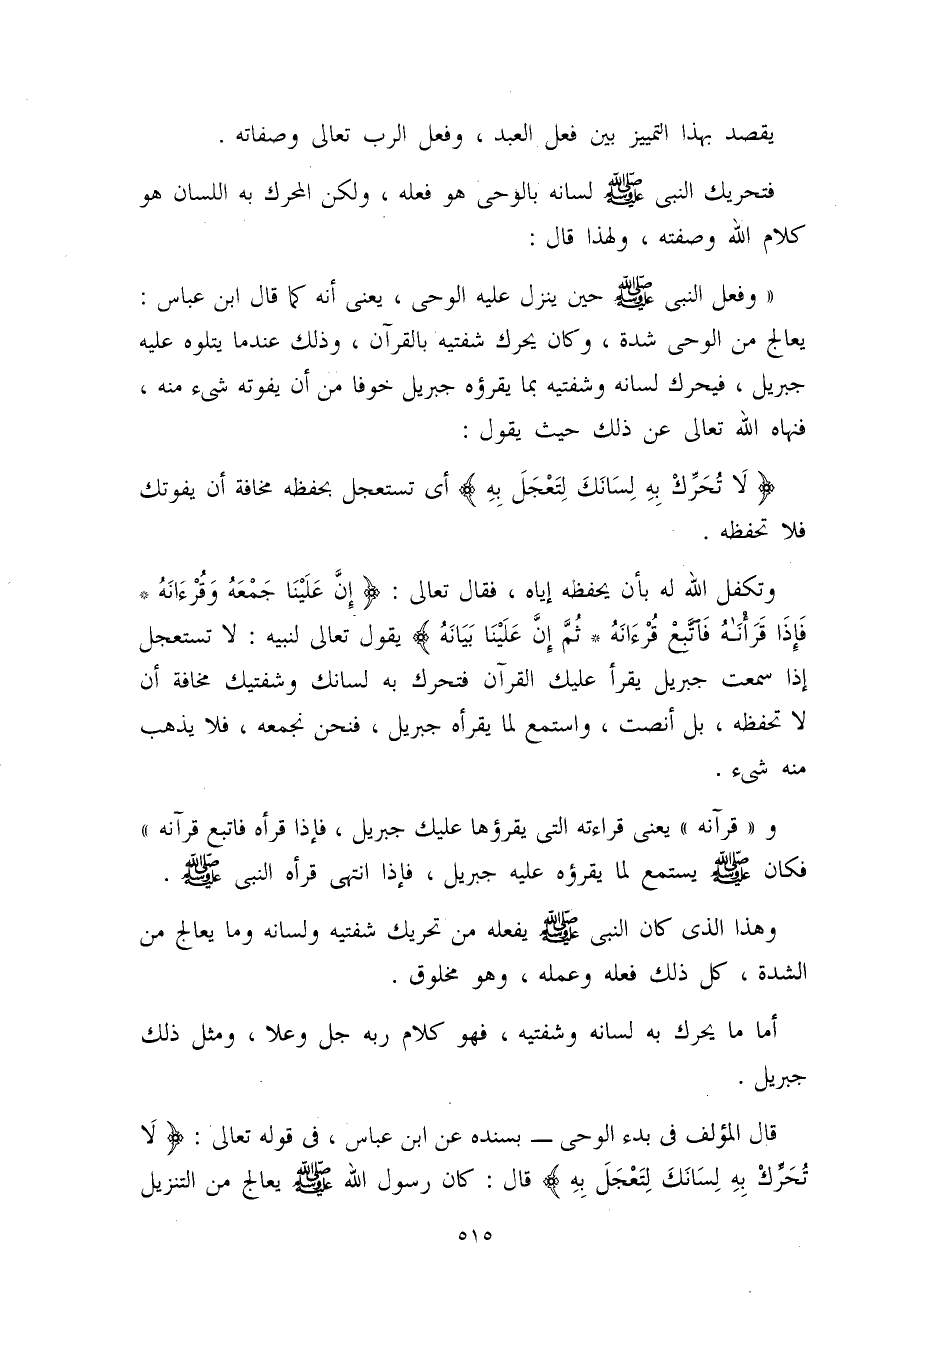 يقصد بهذا التمييز بين فعل العبد ، وفعل الرب تعالى وصفاته .
فتحريك النبى ﷺ لسانه بالوحى هو فعله ، ولكن المحرك به اللسان هو
كلام الله وصفته ، ولهذا قال :
« وفعل النبى ﷺ حين ينزل عليه الوحى ، يعنى أنه كما قال ابن عباس :
يعالج من الوحى شدة ، وكان يحرك شفتيه بالقرآن ، وذلك عندما يتلوه عليه
جبريل ، فيحرك لسانه وشفتيه بما يقرؤه جبريل خوفا من أن يفوته شىء منه ،
فنهاه الله تعالى عن ذلك حيث يقول :
﴿ لَا تُحَرِّكْ بِهِ لِسَانَكَ لِتَعْجَلَ بِهِ ﴾ أى تستعجل بحفظه مخافة أن يفوتك
فلا تحفظه .
وتكفل الله له بأن يحفظه إياه ، فقال تعالى : ﴿ إِنَّ عَلَيْنَا جَمْعَهُ وَقُرْءَانَهُ *
فَإِذَا قَرَأْنَـٰهُ فَٱتَّبِعْ قُرْءَانَهُ * ثُمَّ إِنَّ عَلَيْنَا بَيَانَهُ ﴾ يقول تعالى لنبيه : لا تستعجل
إذا سمعت جبريل يقرأ عليك القرآن فتحرك به لسانك وشفتيك مخافة أن
لا تحفظه ، بل أنصت ، واستمع لما يقرأه جبريل ، فنحن نجمعه ، فلا يذهب
منه شىء .
و « قرآنه » يعنى قراءته التى يقرؤها عليك جبريل ، فإذا قرأه فاتبع قرآنه »
فكان ﷺ يستمع لما يقرؤه عليه جبريل ، فإذا انتهى قرأه النبى ﷺ .
وهذا الذى كان النبى ﷺ يفعله من تحريك شفتيه ولسانه وما يعالج من
الشدة ، كل ذلك فعله وعمله ، وهو مخلوق .
أما ما يحرك به لسانه وشفتيه ، فهو كلام ربه جل وعلا ، ومثل ذلك
جبريل .
قال المؤلف فى بدء الوحى ــ بسنده عن ابن عباس ، فى قوله تعالى : ﴿ لَا
تُحَرِّكْ بِهِ لِسَانَكَ لِتَعْجَلَ بِهِ ﴾ قال : كان رسول الله ﷺ يعالج من التنزيل
٥١٥